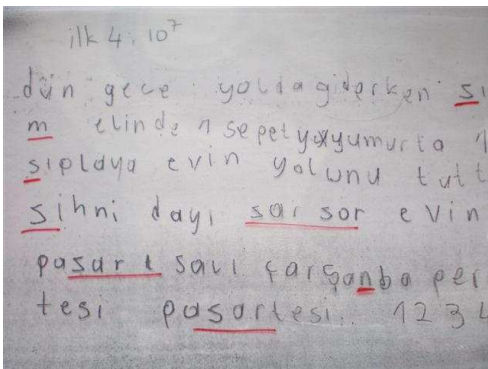 ilk 4. 10⁷
dün gece yolda giderken sı
m elinden sepet yumurta 1
sıpldya evin yolunu tutt
sihni dayı sar sor evin
pasar t salı çarşanba per
tesi pasartesi.. 1234